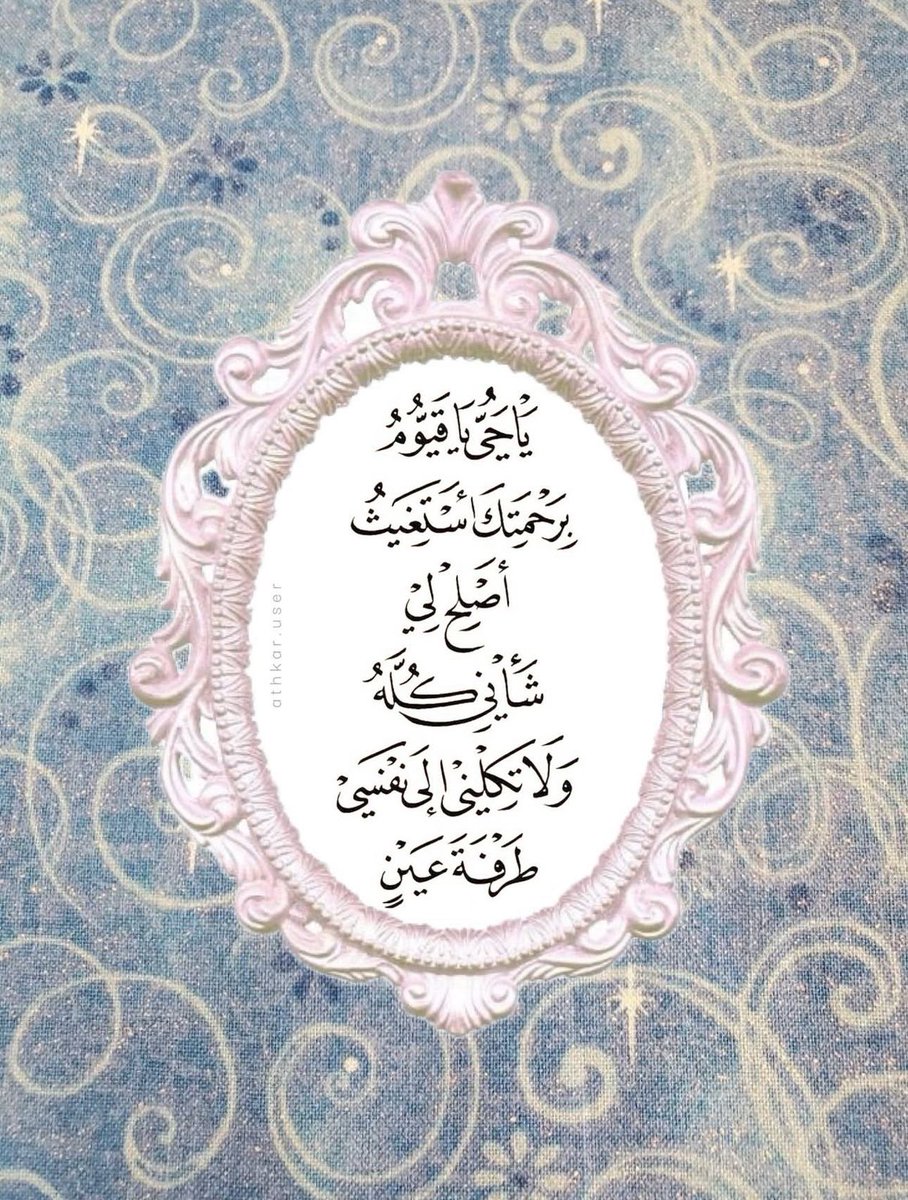 يَا حَيُّ يَا قَيُّومُ
بِرَحْمَتِكَ أَسْتَغِيثُ
أَصْلِحْ لِيْ
شَأْنِي كُلَّهُ
وَلَا تَكِلْنِيْ إِلَى نَفْسِيْ
طَرْفَةَ عَيْنٍ
athkar.user